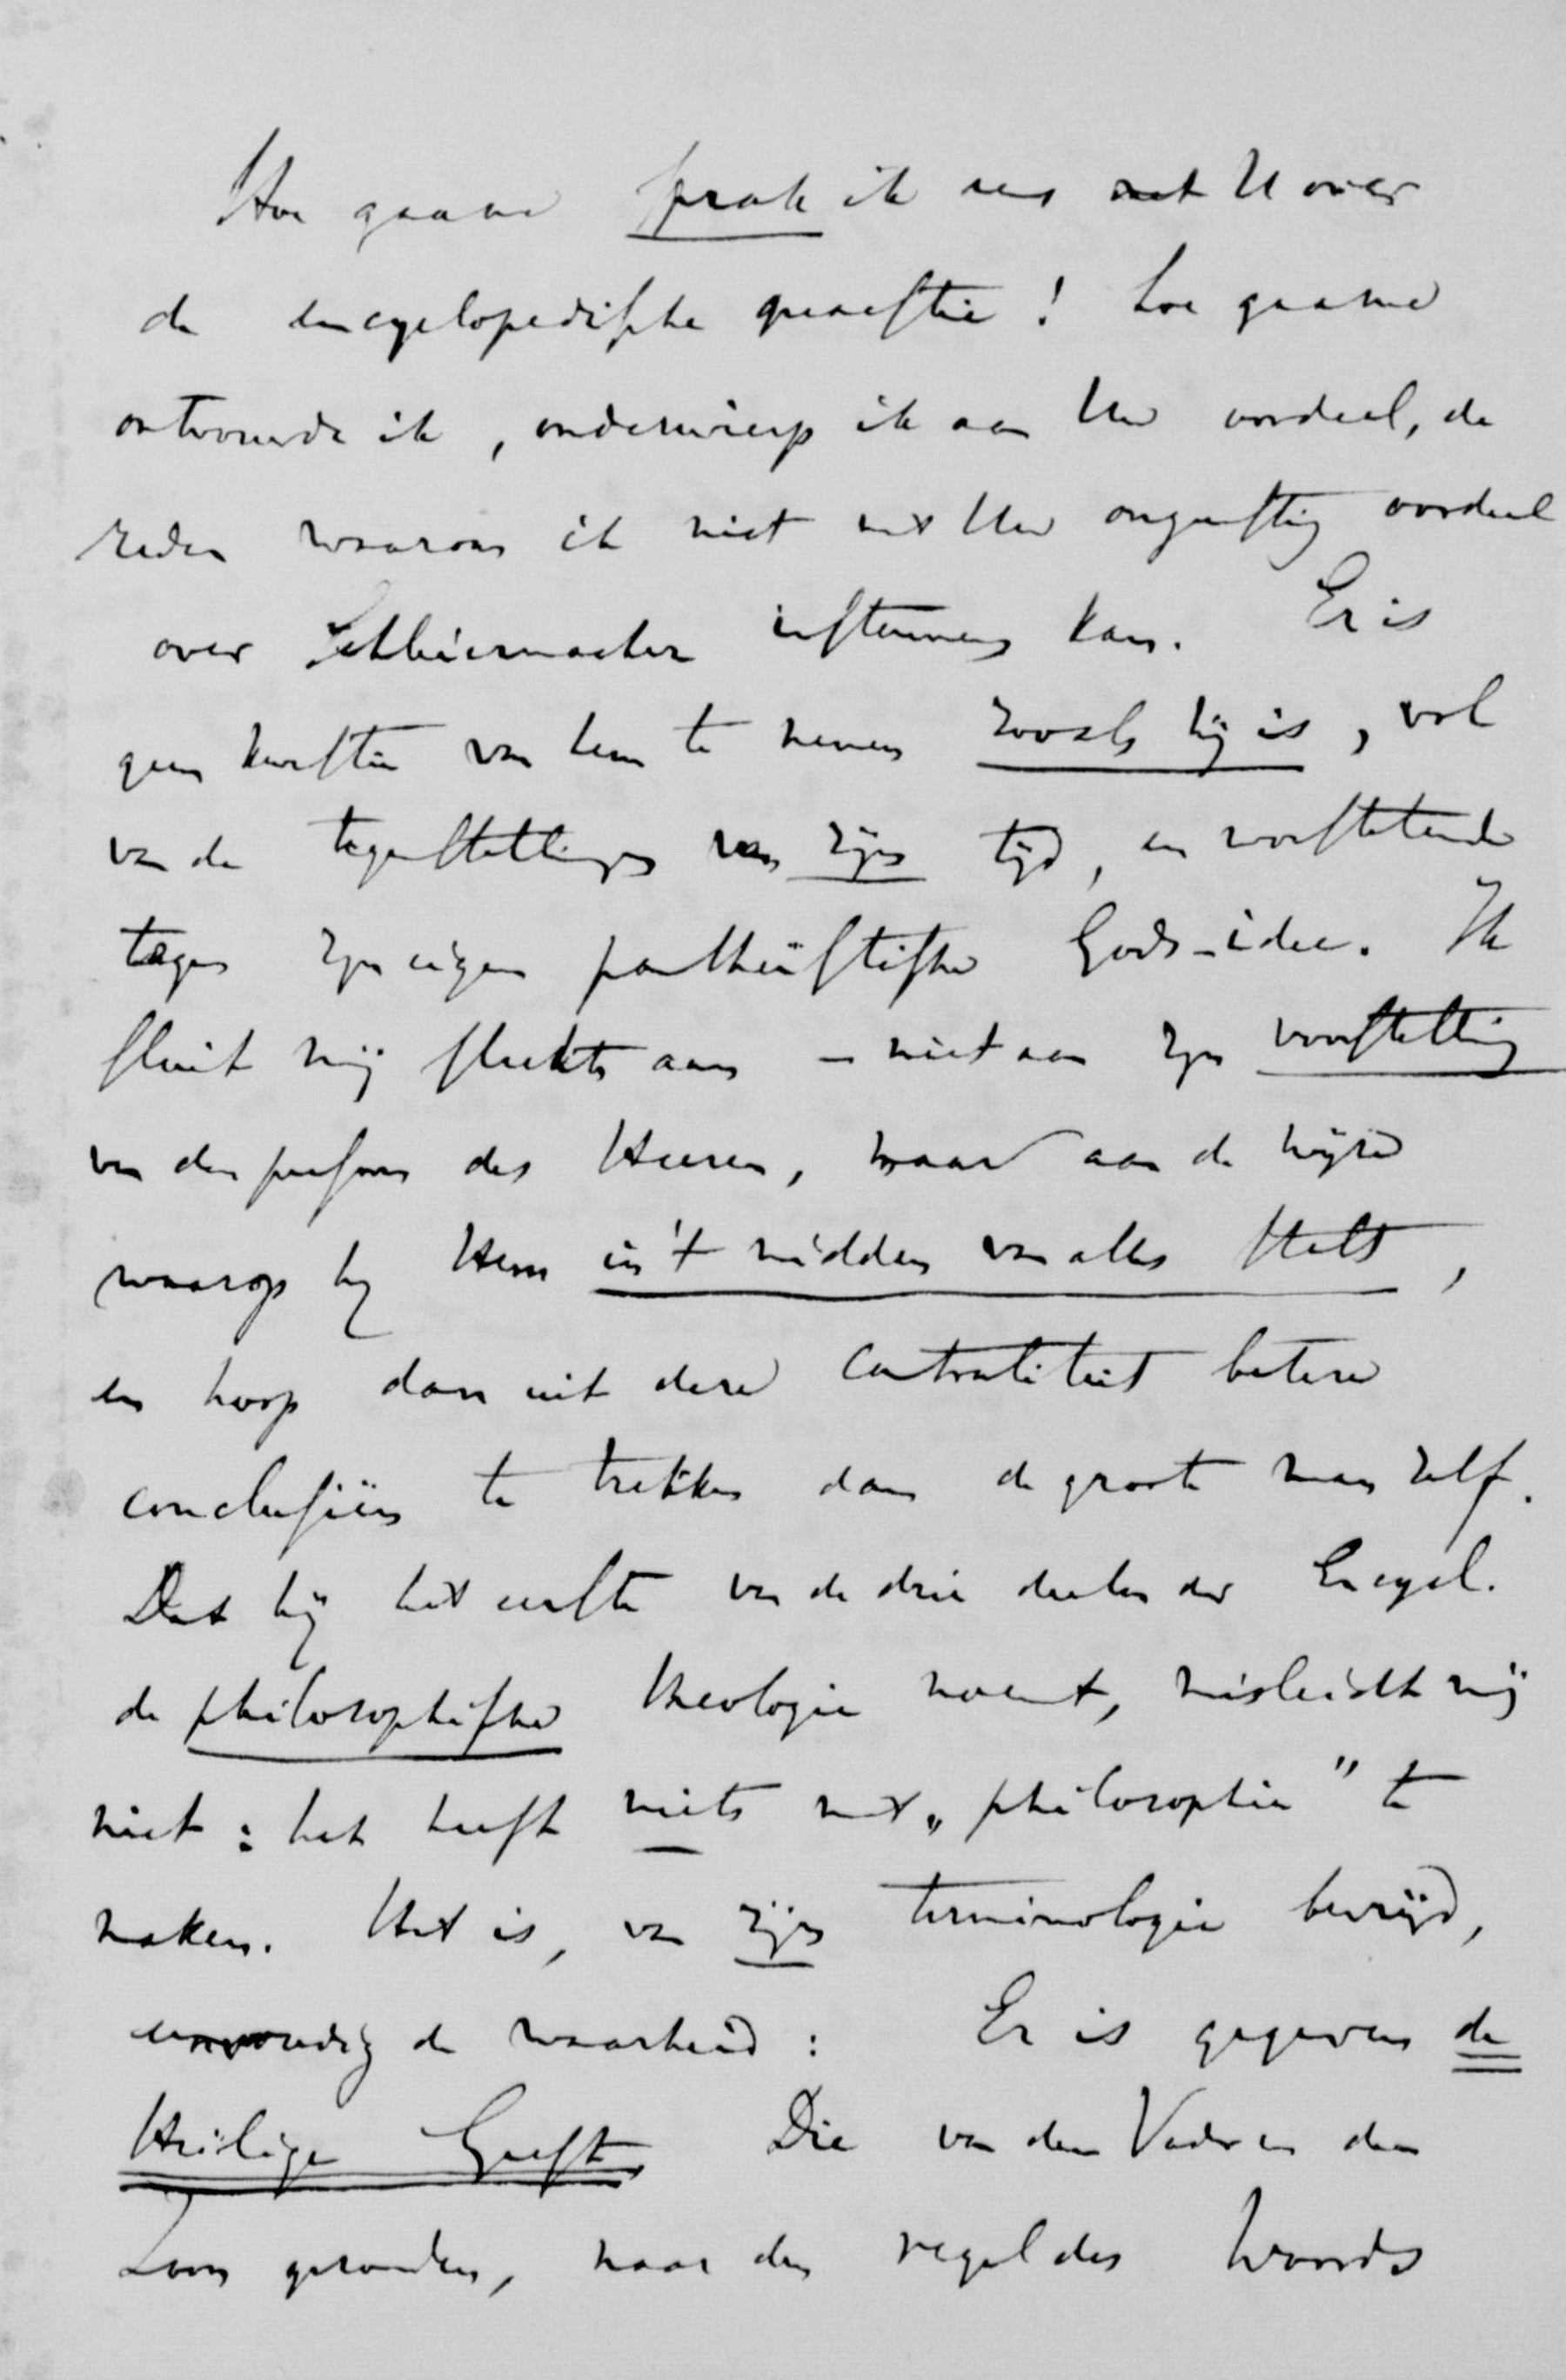 Hoe gaarne sprak ik eens met U over
de encyclopedische quaestie! hoe gaarne
ontvouwde ik, onderwierp ik aan Uw oordeel, de
reden waarom ik niet met Uw ongunstig oordeel
over Schleiermacher instemmen kan. Er is
geen kwestie van hem te nemen zooals hij is, vol
van de tegenstellingen van zijn tijd, en worstelende
tegen zijn eigen pantheïstische Gods-idee. Ik
sluit mij slechts aan – niet aan zijn voorstelling
van den persoon des Heeren, maar aan de wijze
waarop hij Hem in 't midden van alles stelt,
en hoop dan uit deze centraliteit betere
conclusiën te trekken dan de groote man zelf.
Dat hij het eerste van de drie deelen der Encycl.
de philosophische theologie noemt, misleidt mij
niet: het heeft niets met „philosophie" te
maken. Het is, van zijn terminologie bevrijd,
eenvoudig de waarheid: Er is gegeven de
Heilige Geest Die van den Vader en den
Zoon gezonden, naar den regel des Woords